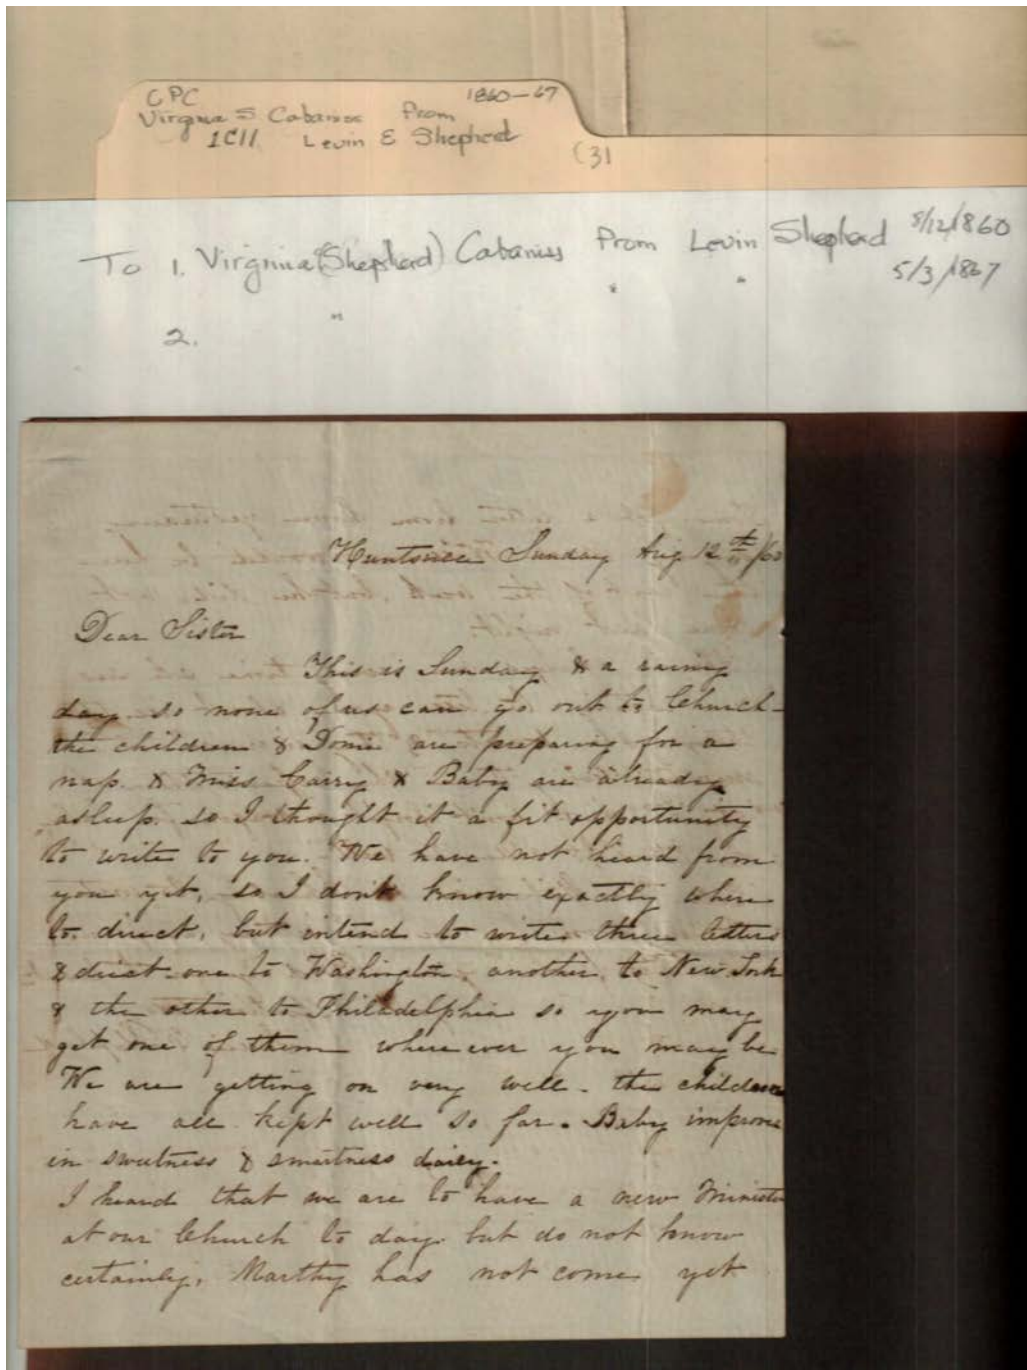 CPC 1860-67
Virginia S Cabaniss From
1C11 Levin E Shepherd
(3)
To 1. Virginia (Shepherd) Cabaniss From Levin Shepherd 8/12/1860
" " " 5/3/1867
2.
Huntsville Sunday Aug 12th /60
Dear Sister
This is Sunday & a rainy
day so none of us can go out to Church -
the children & Domie are preparing for a
nap. & Miss Carry & Baby are already
asleep. so I thought it a fit opportunity
to write to you. We have not heard from
you yet, so I dont know exactly where
to direct, but intend to write three letters
& direct one to Washington, another to New York
& the other to Philadelphia so you may
get one of them where ever you may be
We are getting on very well - the children
have all kept well so far. Baby improves
in sweetness & smartness daily.
I heard that we are to have a new Minister
at our Church to day but do not know
certainly, Marthy has not come yet